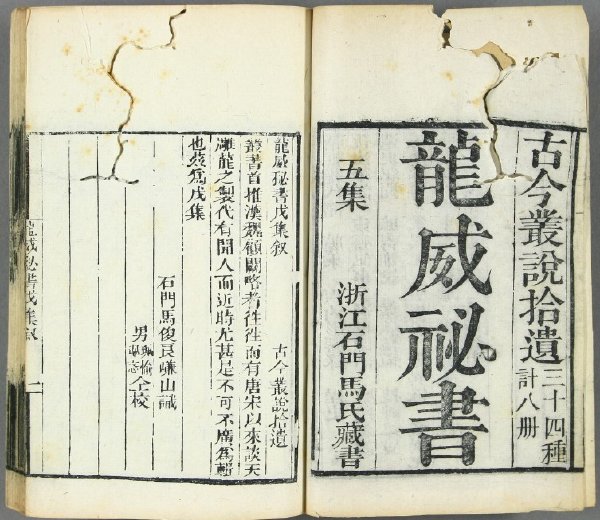 古今叢說拾遺 三十四種 計八册
龍威祕書
五集
浙江石門馬氏藏書
龍威秘書戊集叙
古今叢說拾遺
叢書首推漢魏顧闕略者往往而有唐宋以來談天
雕龍之製代有聞人而近時尤甚是不可不廣爲輯
也茲爲戊集
石門馬俊良嵰山識
男 全校
龍威秘書戊集叙 一